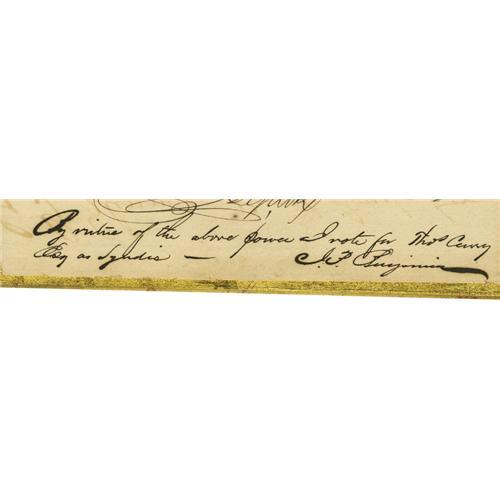 By virtue of the above power I vote for Thos Curry
Esq as Syndic —
J. P. Benjamin